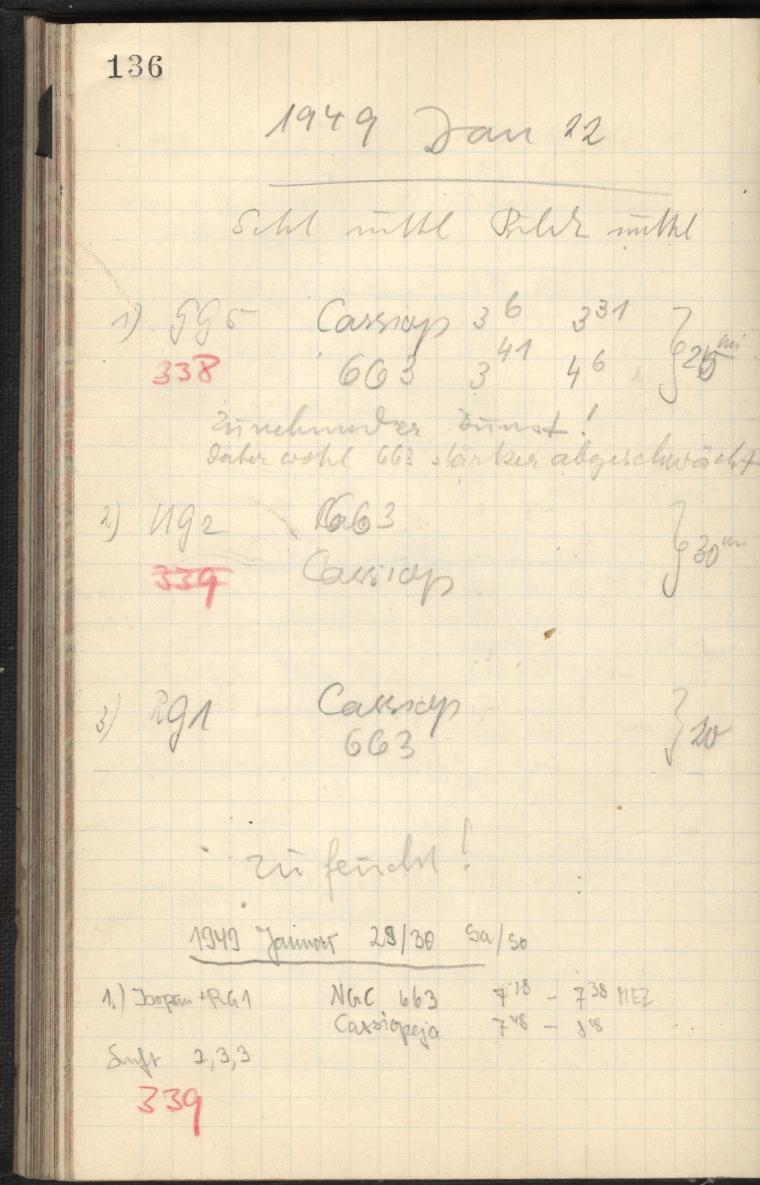 136
1949 Jan 22
mittl Bilder mittl
1) GG5 Cassiop 3 6 3 31 } 25 m
338 663 3 41 4 6
Zunehmender Dunst!
daher wohl 663 stärker abgeschwächt
2) UG2 663 } 30 m
339 Cassiop
3) RG1 Cassiop } 20
663
zu feucht!
1949 Januar 29/30 Sa/So
1.) Isopan + RG1 NGC 663 7 18 – 7 38 MEZ
Cassiopeja 7 48 – 8 08
Luft 2,3,3
339